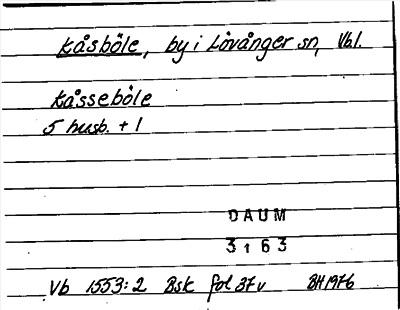 Kåsböle, by i Lövånger sn, Vb l.
Kåsseböle
5 husb. + 1
DAUM
3163
Vb 1553:2 Bsk fol 37v BH 1976